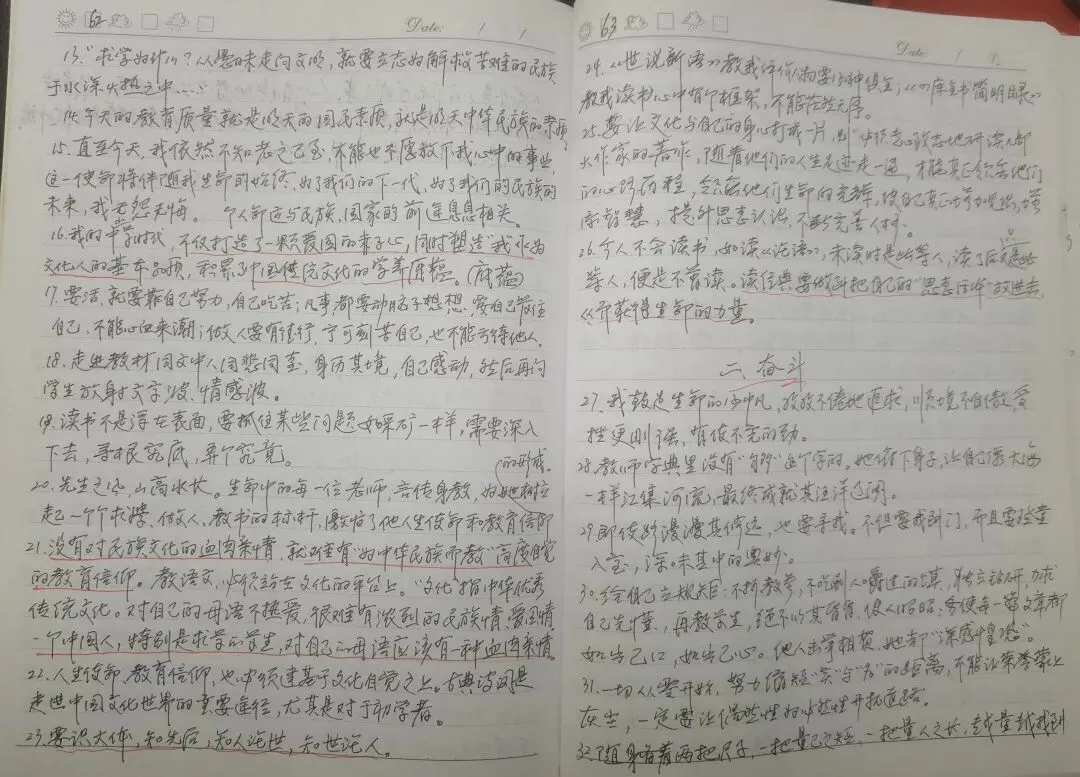 62
Date: / /
13."求学为什么?从愚昧走向文明,就要立志为解救苦难的民族
于水深火热之中……"
14.今天的教育质量就是明天的国民素质,就是明天中华民族的素质
15.直至今天,我依然不知老之已至,不能也不愿放下我心中的事业,
这一使命将伴随我生命的始终,为了我们的下一代,为了我们的民族的
未来,我无怨无悔。 个人命运与民族,国家的前途息息相关。
16.我的中学时代,不仅打造了一颗爱国的赤子心,同时塑造我成为
文化人的基本品质,积累了中国传统文化的学养底蕴。(底蕴)
17.要活,就要靠自己努力,自己吃苦;凡事都要动脑子想想,要自己管住
自己,不能心血来潮;做人要有德行,宁可刻苦自己,也不能亏待他人。
18.走进教材同文中人同悲同喜,身历其境,自己感动,然后再向
学生放射文字波、情感波。
19.读书不是浮在表面,要抓住某些问题如采矿一样,需要深入
下去,寻根究底,弄个究竟。
20.先生之风,山高水长。生命中的每一位老师,言传身教,为她树立
的形成。
起一个个求学、做人、教书的标杆,激励了他人生使命和教育信仰
21.没有对民族文化的血肉亲情,就难有"为中华民族而教"高度自觉
的教育信仰。教语文,必须站在文化的平台上。"文化"指中华优秀
传统文化。对自己的母语不热爱,很难有浓烈的民族情、爱国情
一个中国人,特别是求学的学生,对自己的母语应该有一种血肉亲情。
22.人生使命、教育信仰,也必须建基于文化自觉之上。古典诗词是
走进中国文化世界的重要途径,尤其是对于初学者。
23.要识大体,知先后,知人论世,知世论人。
63
Date: / /
24.《世说新语》教我评价人物要的种俱全;《四库全书简明目录》
教我读书心中有个框架,不能茫然无序。
25.要让文化与自己的身心打成一片,则"必须专心致志地研读几部
大作家的著作,随着他们的人生足迹走一遍,才能真正领会他们
的心路历程,领会他们生命的光辉,使自己真正增加见识,增
长智慧,提升思想认识,不断完善人格。
26.今人不会读书,如读《论语》,未读时是此等人,读了后又只是此
等人,便是不曾读。读经典要做到把自己的"思想信仰"放进去
从而获得生命的力量。
二、奋斗
27.我鼓足生命的风帆,孜孜不倦地追求,顺境不自傲,受
挫更刚强,有使不完的劲。
28.教师字典里没有"够"这个字的。她俯下身子,让自己像大海
一样汇集河流,最终成就其汪洋辽阔。
29.即使路漫漫其修远,也要寻找。不但要找到门,而且要登堂
入室,深味其中的奥妙。
30.给自己立规矩:不抄教参,不吃别人嚼过的馍,独立钻研,力求
自己先懂,再教学生,绝不以其昏昏,使人昭昭,务使每一篇文章都
如出己口,如出己心。他人击掌相贺,她却"深感惶恐"。
31.一切从零开始,努力缩短"实"与"名"的距离,不能让荣誉蒙上
灰尘,一定要让偶然性的必然性开拓道路。
32.随身带着两把尺子,一把量己之短,一把量人之长,越量越找到